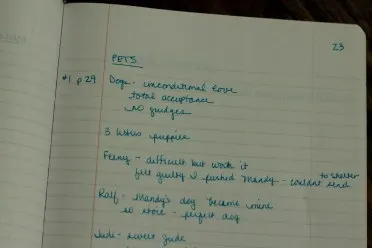 23
PETS
#1 p29 Dogs - unconditional love
total acceptance
no grudges
3 puppies
- difficult but worth it
felt guilty I pushed Mandy - couldn't send to shelter
Ralf - Mandy's dog became mine
so - perfect dog
Jude - sweet Jude